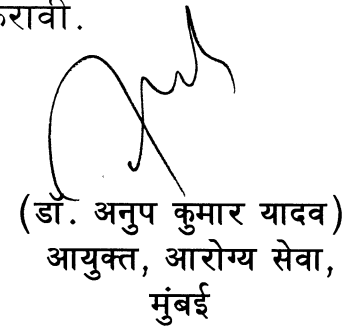 करावी.
(डॉ. अनुप कुमार यादव)
आयुक्त, आरोग्य सेवा,
मुंबई